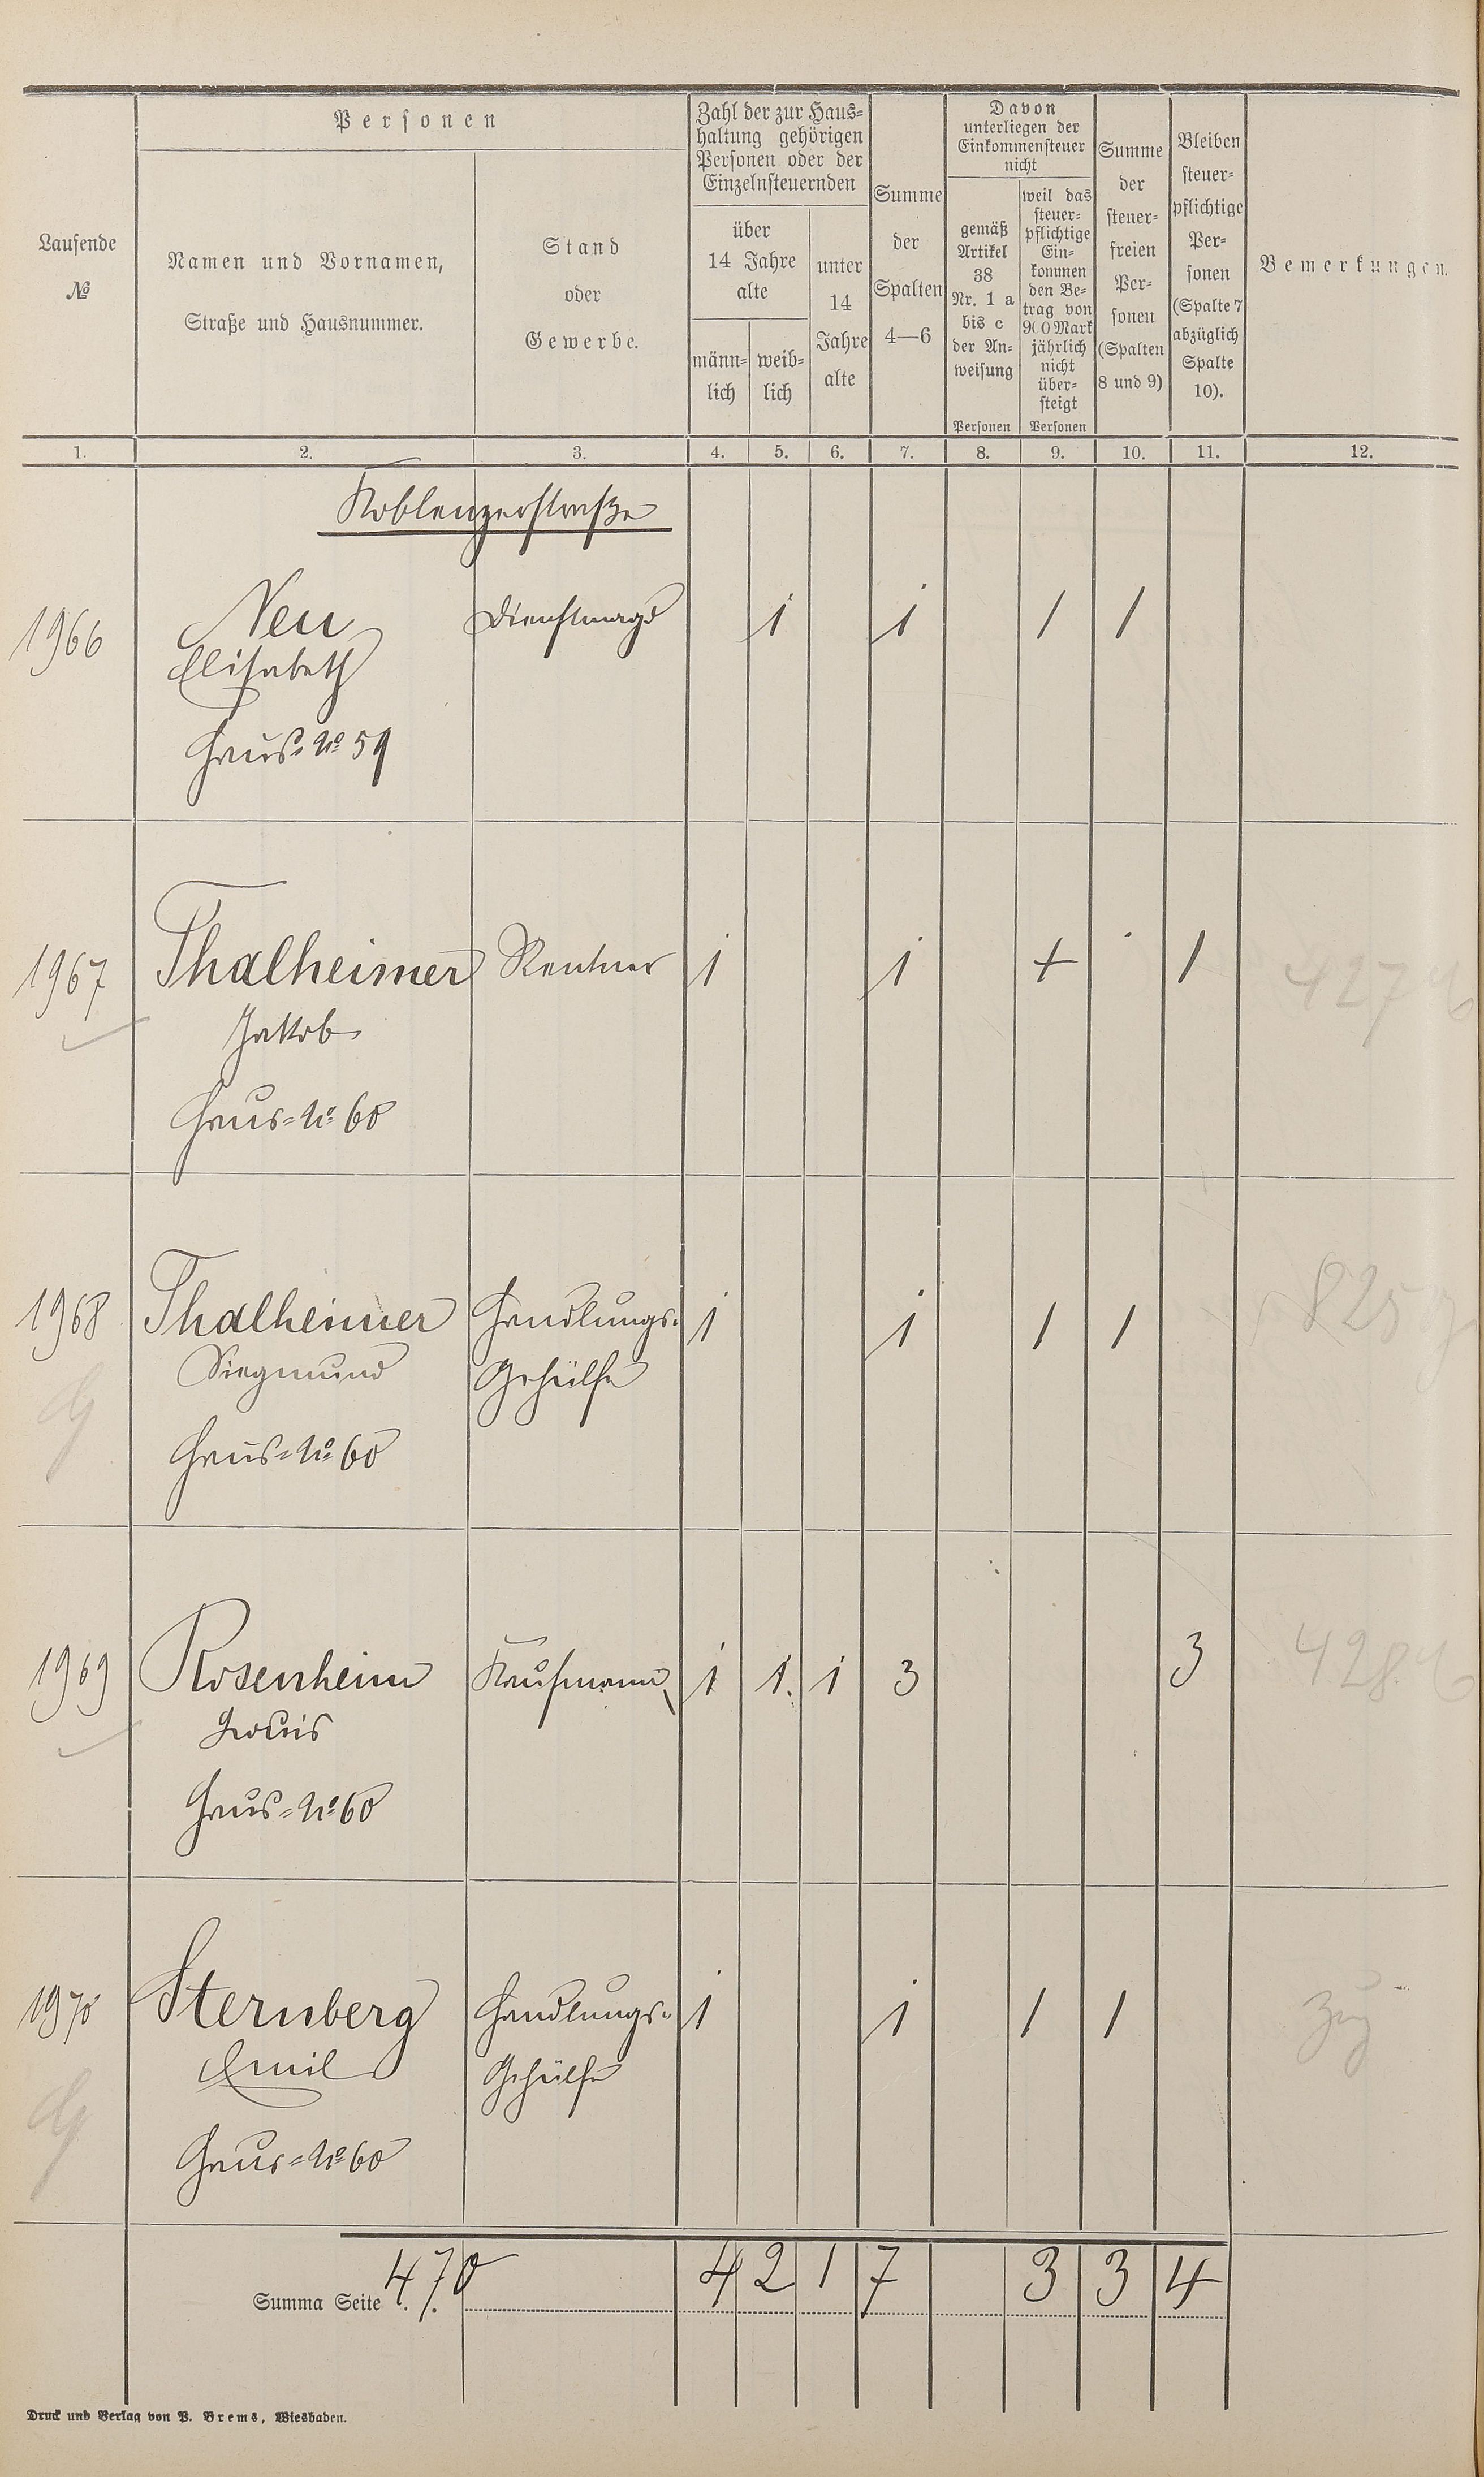 Laufende
№
Personen
Namen und Vornamen,
Straße und Hausnummer.
Stand
oder
Gewerbe.
Zahl der zur Haus-
haltung gehörigen
Personen oder der
Einzelnsteuernden
über
14 Jahre
alte
männ-
lich
weib-
lich
unter
14
Jahre
alte
Summe
der
Spalten
4—6
Davon
unterliegen der
Einkommensteuer
nicht
gemäß
Artikel
38
Nr. 1 a
bis c
der An-
weisung
Personen
weil das
steuer-
pflichtige
Ein-
kommen
den Be-
trag von
900 Mark
jährlich
nicht
über-
steigt
Personen
Summe
der
steuer-
freien
Per-
sonen
(Spalten
8 und 9)
Bleiben
steuer-
pflichtige
Per-
sonen
(Spalte 7
abzüglich
Spalte
10).
Bemerkungen.
1. 2. 3. 4. 5. 6. 7. 8. 9. 10. 11. 12.
Koblenzerstraße
1966 Neu Dienstmagd 1 1 1 1
Elisabeth
Haus-No 59
1967 Thalheimer Rentner 1 1 + 1 427
Jakob
Haus-No 60
1968 Thalheimer Handlungs- 1 1 1 1 825
Siegmund Gehülfe
Haus-No 60
1969 Rosenheim Kaufmann 1 1. 1 3 3 428
Louis
Haus-No 60
1970 Sternberg Handlungs- 1 1 1 1
Emil Gehülfe
Haus-No 60
Summa Seite 470 4 2 1 7 3 3 4
Druck und Verlag von P. Brems, Wiesbaden.